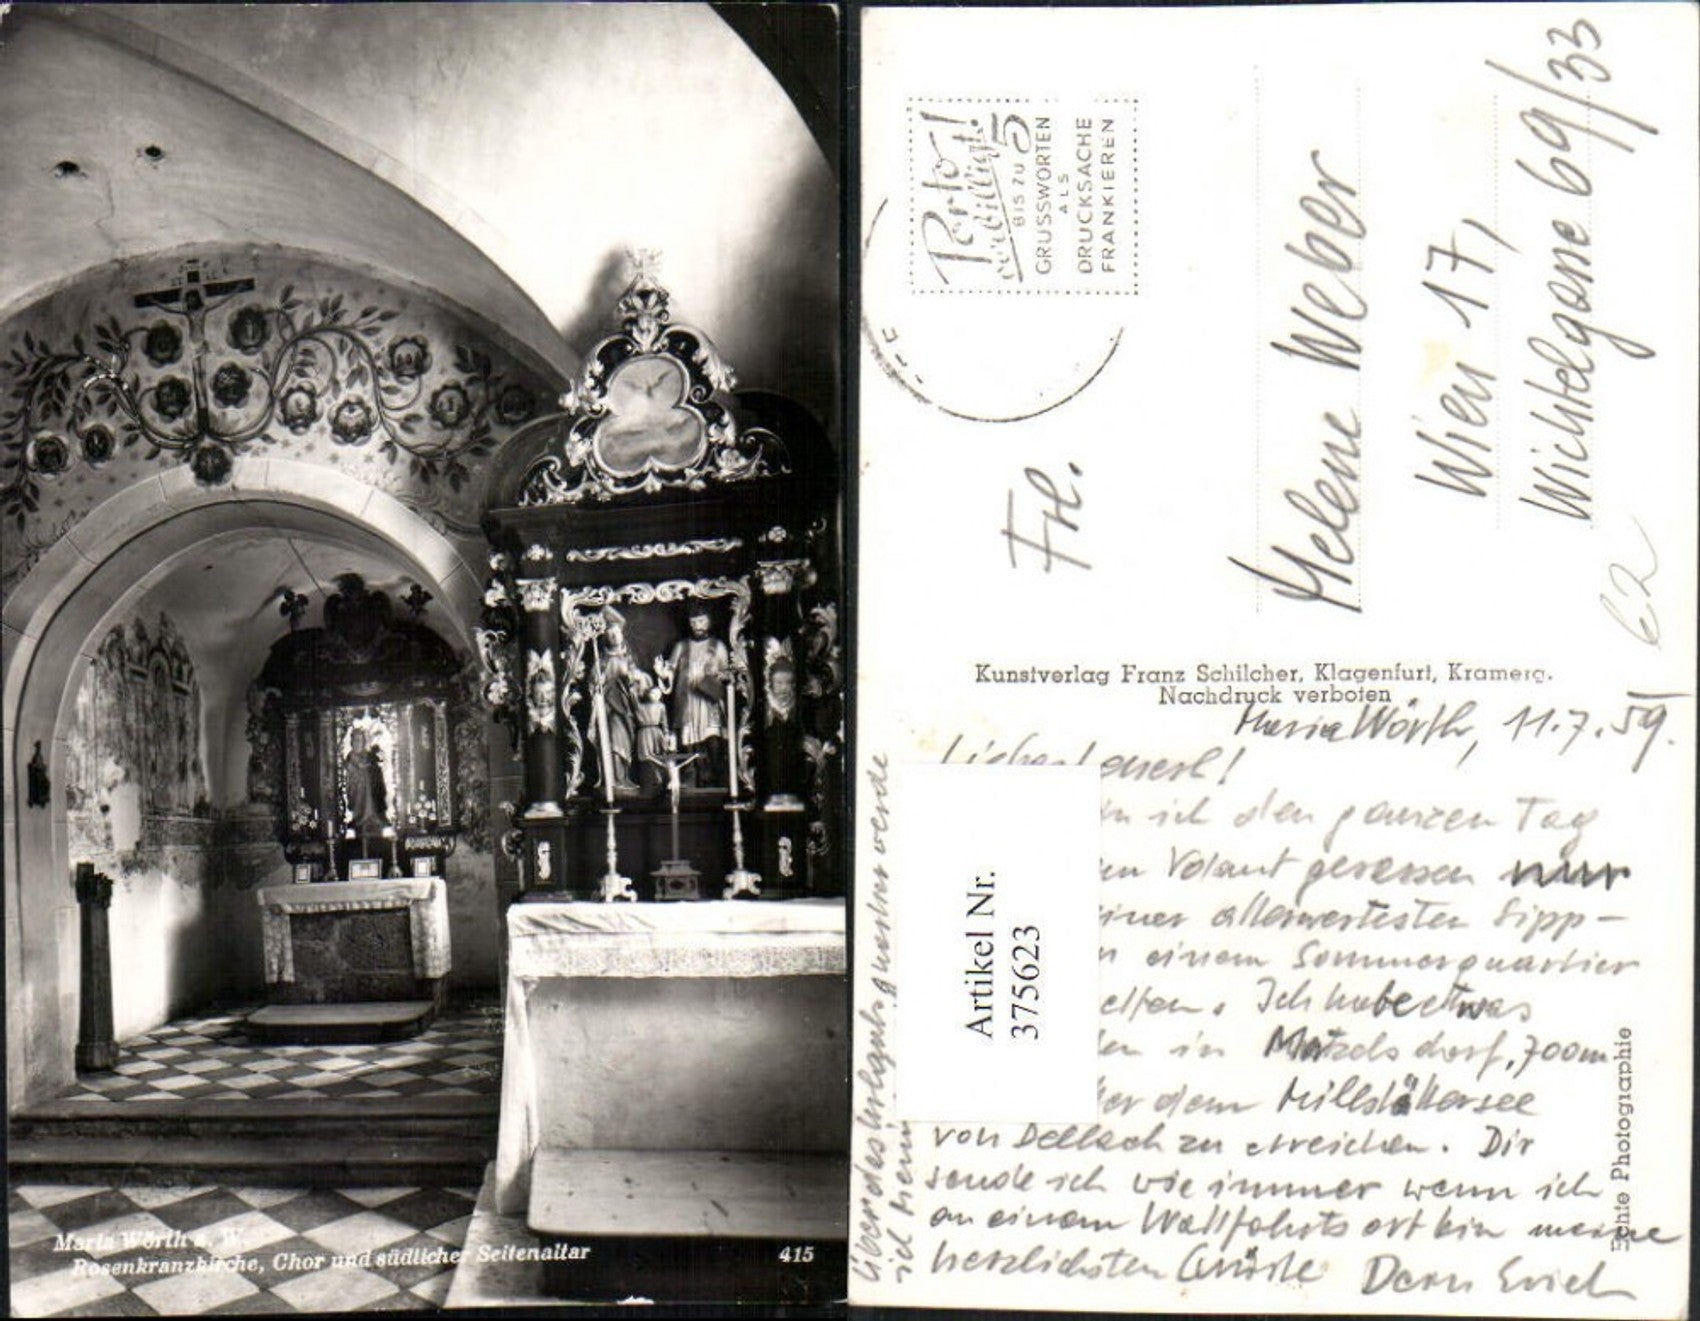 Maria Wörth a. W.
Rosenkranzkirche, Chor und südlicher Seitenaltar
415
Porto
verbilligt!
BIS ZU 5
GRUSSWORTEN
ALS
DRUCKSACHE
FRANKIEREN
Frl.
Helene Weber
Wien 17,
Wichtelgasse 69/33
62
Kunstverlag Franz Schilcher, Klagenfurt, Kramerg.
Nachdruck verboten
Maria Wörth, 11.7.59.
ich den ganzen Tag
Volant gesessen nur
einer allerwertesten Sipp-
einem Sommerquartier
Ich habe etwas
in Matzelsdorf, 700m
dem Millstättersee
von Dellach zu erreichen. Dir
sende ich wie immer wenn ich
an einem Wallfahrtsort bin meine
herzlichsten Grüße Dein Erich
Artikel Nr.
375623
Echte Photographie